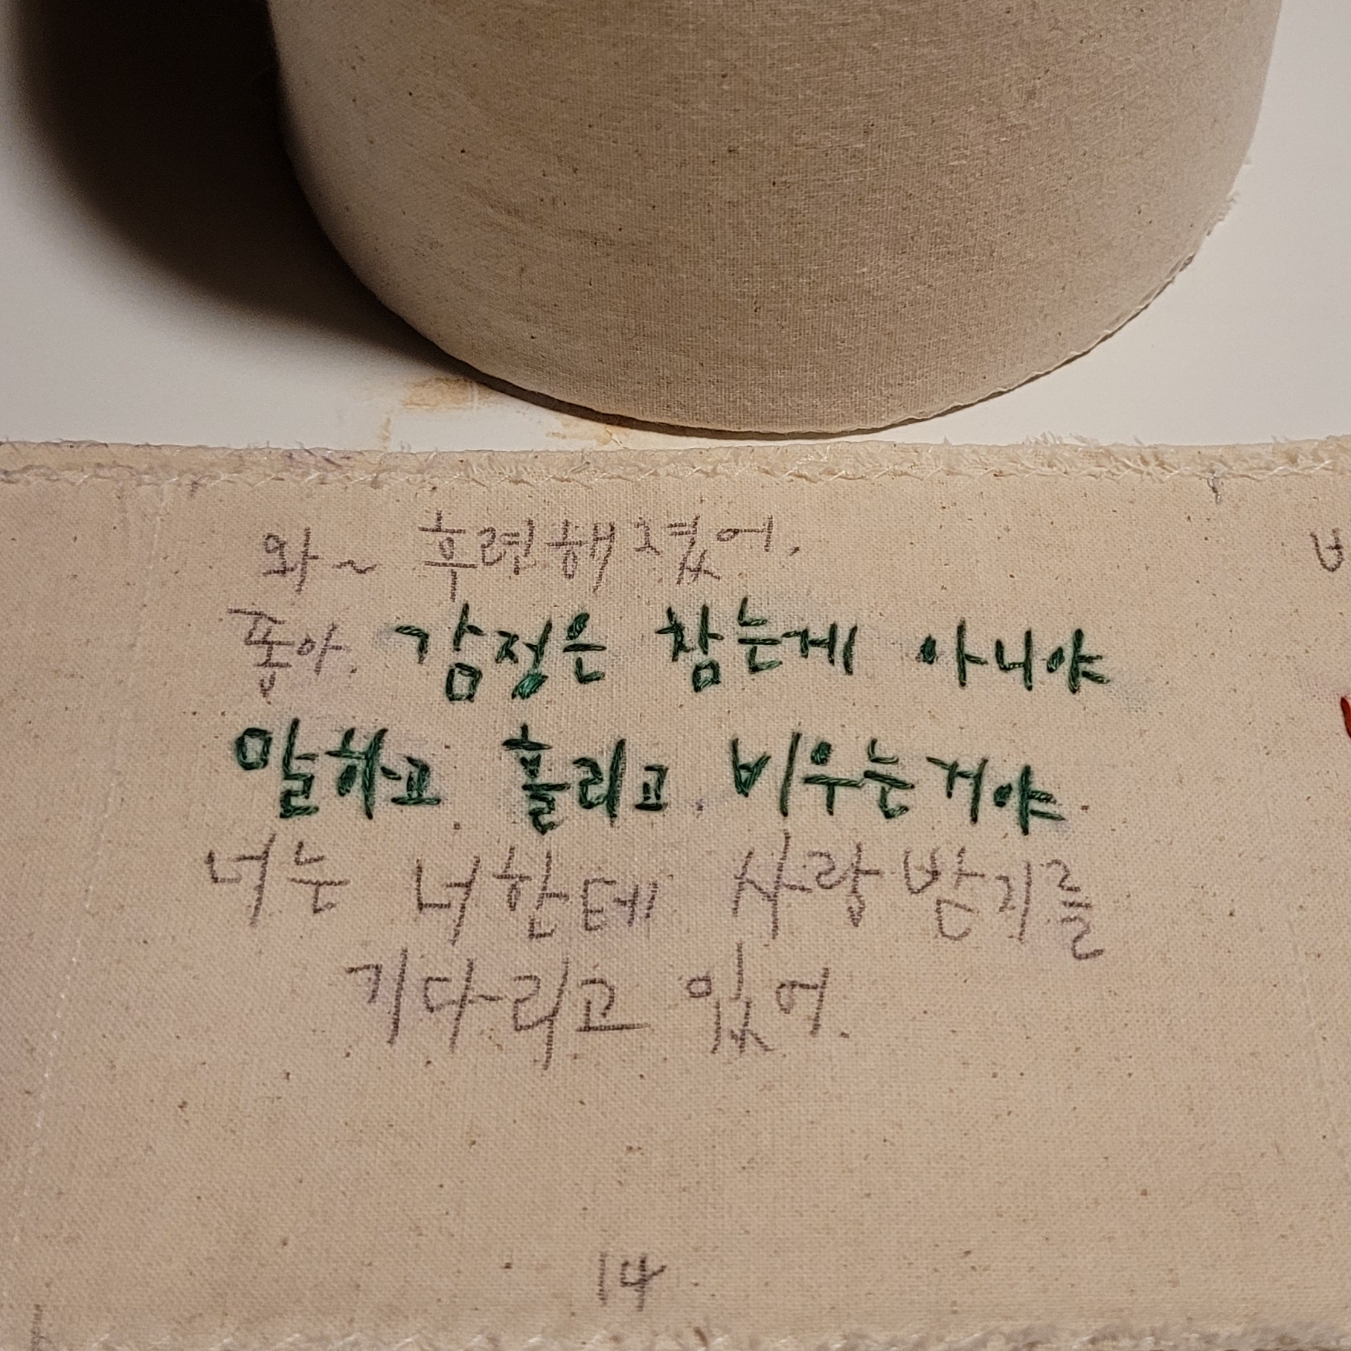 와~ 후련해졌어.
좋아. 감정은 참는게 아니야
말하고. 흘리고. 비우는거야.
너는 너한테 사랑받기를
기다리고 있어.
14